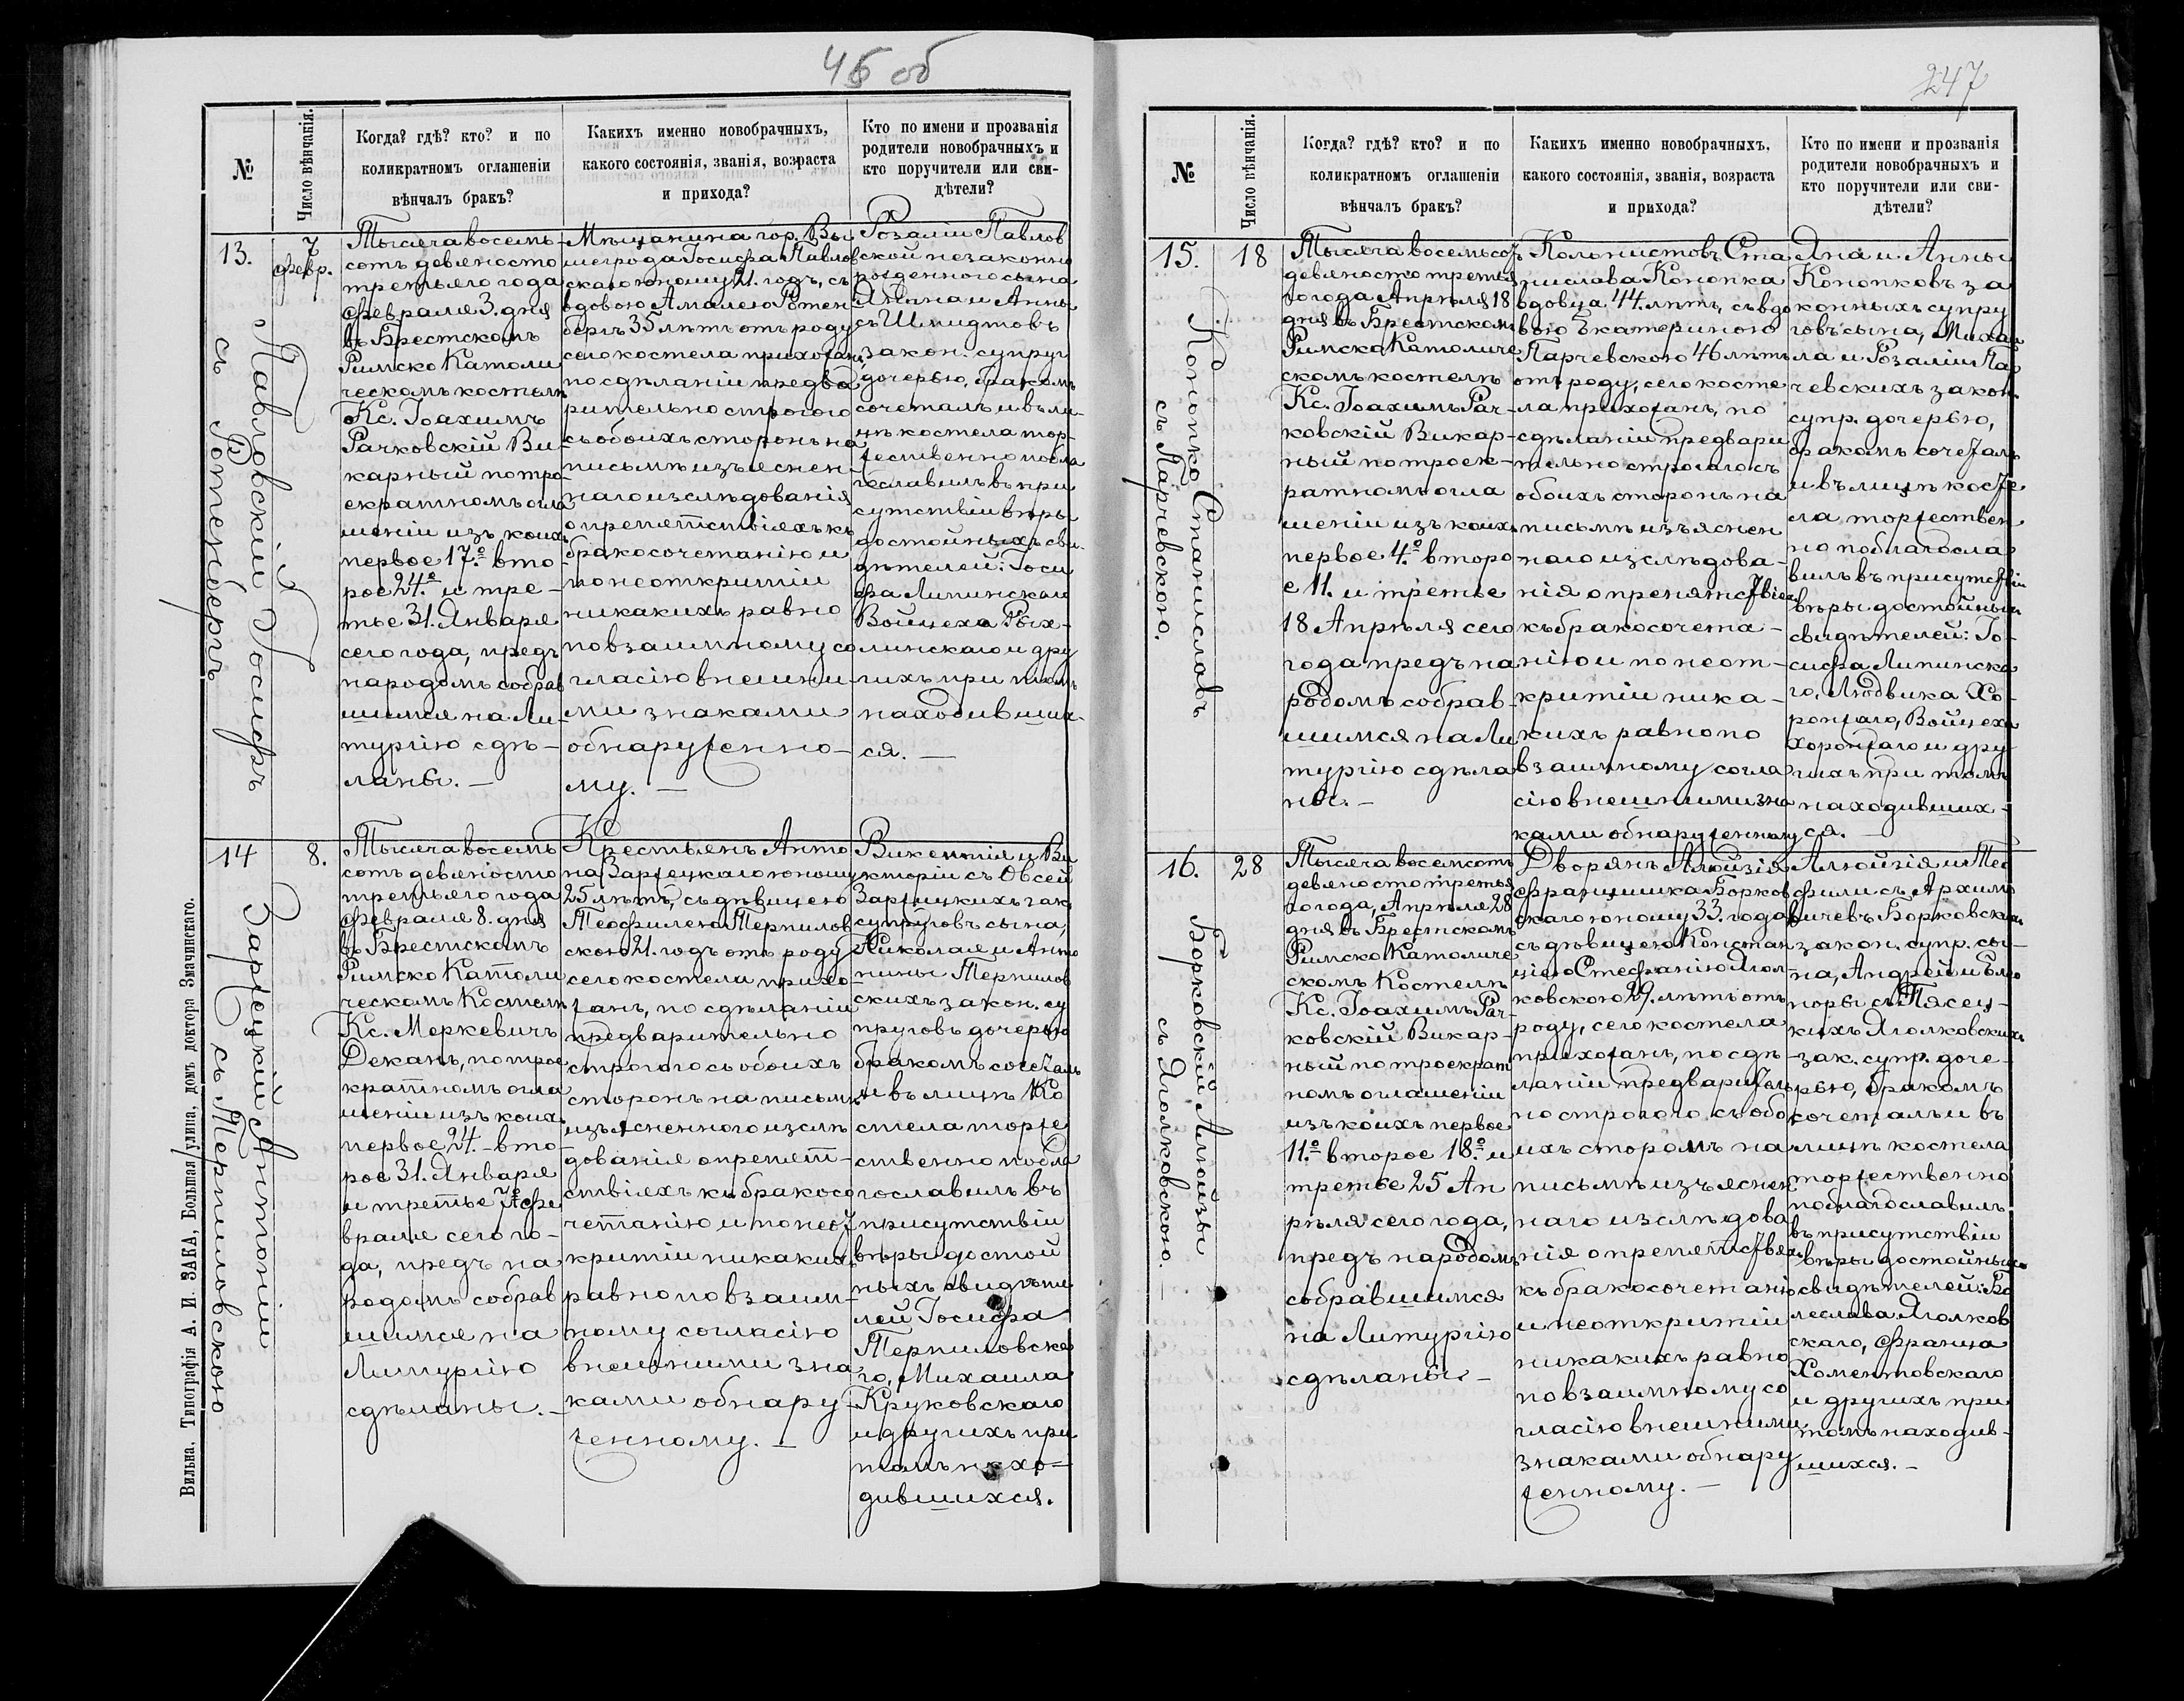 45 об
№
Число вѣнчанія.
Когда? гдѣ? кто? и по
коликратномъ оглашеніи
вѣнчалъ бракъ?
Какихъ именно новобрачныхъ,
какого состоянія, званія, возраста
и прихода?
Кто по имени и прозванія
родители новобрачныхъ и
кто поручители или сви-
дѣтели?
13.
7
февр.
Павловскій Іосифъ
съ Ротенбергъ
Тысяча восемь-
сотъ девяносто
третьяго года
Февраля 3. дня
въ Брестскомъ
Римско Католи
ческомъ костелѣ
Кс. Іоахимъ
Рачковскій Ви-
карный по тро-
екратномъ огла
шеніи изъ коихъ
первое 17.º вто-
рое 24.º и тре-
тье 31. Января
сего года, предъ
народомъ собрав
шимся на Ли-
тургію сдѣ-
ланы. —
Мѣщанина гор. Вы
шегрода Іосифа Павлов
скаго юношу 21. годъ, съ
вдовою Амалею Ротен
бергъ 35 лѣтъ отъ роду
сего костела прихожанъ,
по сдѣланіи предва
рительно строгого
съ обоихъ сторонъ на
письмѣ изъяснен-
наго изслѣдованія
о препятствіяхъ къ
бракосочетанію и
по неоткрытіи
никакихъ равно
по взаимному со
гласію внешни-
ми знаками
обнаруженно-
му. —
Розаліи Павлов
ской незаконно
рожденного сына
Яна и Анны
съ Шмидтовъ
закон. супруг
дочерью, бракомъ
сочеталъ и въ ли-
цѣ костела тор-
жественно побла
гославилъ въ при
сутствіи вѣры
достойныхъ сви-
дѣтелей: Іоси
фа Липинскаго
Войцеха Рых-
линскаго и дру
гихъ при томъ
находивших-
ся. —
14
8.
Заржецкій Антоній
съ Терпиловскою
Тысяча восемь
сотъ девяносто
третьяго года
Февраля 8. дня
въ Брестскомъ
Римско Католи
ческомъ Костелѣ
Кс. Меркевичъ
Деканъ, по трое
кратномъ огла
шеніи изъ коихъ
первое 24.- вто
рое 31. Января
и третье 7º Фе
враля сего го-
да, предъ на
родомъ собрав
шимся на
Литургію
сдѣланы. —
Крестьянъ Анто
на Заржецкаго юношу
25 лѣтъ, съ дѣвицею
Теофилею Терпилов
скою 21. годъ отъ роду
сего костела прихо
жанъ, по сдѣланіи
предварительно
строгого съ обоихъ
сторонъ на письмѣ
изъясненного изслѣ
дованія о препят-
ствіяхъ къ бракосо
четанію и по неот
крытіи никакихъ
равно по взаим-
ному согласію
внешними зна
ками обнару-
женному. —
Викентія и Ви
кторіи съ Овсей
Заржецкихъ зак.
супруговъ сына,
Николая и Анто
нины Терпилов
скихъ закон. су
пруговъ дочерью
бракомъ сочеталъ
и въ лицѣ Ко
стела торже
ственно побла
гославилъ въ
присутствіи
вѣры достой
ныхъ свидѣте
лей Іосифа
Терпиловска
го, Михаила
Круковскаго
и другихъ при
томъ нахо=
дившихся.
Вильна. Типографія А. И. ЗАКА, Большая улица, домъ доктора Змачинскаго.
247
№
Число вѣнчанія.
Когда? гдѣ? кто? и по
коликратномъ оглашеніи
вѣнчалъ бракъ?
Какихъ именно новобрачныхъ,
какого состоянія, званія, возраста
и прихода?
Кто по имени и прозванія
родители новобрачныхъ и
кто поручители или сви-
дѣтели?
15.
18
Конопко Станиславъ
съ Парчевскою.
Тысяча восемьсотъ
девяносто третья
го года Апрѣля 18
дня въ Брестскомъ
Римско Католиче
скомъ костелѣ
Кс. Іоахимъ Рач-
ковскій Викар-
ный по троек-
ратномъ огла
шеніи изъ коихъ
первое 4.º второ
е 11. и третье
18 Апрѣля сего
года предъ на
родомъ собрав-
шимся на Ли
тургію сдѣла
ны. —
Колонистовъ Ста
нислава Конопка
вдовца 44 лѣтъ, съ вдо
вою Екатериною
Парчевскою 46 лѣтъ
отъ роду, сего косте
ла прихожанъ, по
сдѣланіи предвари
тельно строгаго съ
обоихъ сторонъ на
письмѣ изъяснен
наго изслѣдова-
нія о препятствіяхъ
къ бракосочета-
нію и по неот-
крытіи ника-
кихъ равно по
взаимному согла
сію внешними зна
ками обнаруженному
Яна и Анны
Конопковъ за
конныхъ супру
говъ сына, Михаи
ла и Розаліи Пар
чевскихъ закон.
супр. дочерью,
бракомъ сочеталъ
и въ лицѣ косте
ла торжествен
но поблагосла
вилъ въ присутствіи
вѣры достойныхъ
свидѣтелей: Іо-
сифа Липинска
го, Людвика Хо-
ронжаго, Войцеха
Хоронжаго и дру
гихъ при томъ
находивших-
ся. —
16.
28
Борковскій Алюйзы
съ Яголковскою. —
Тысяча восемсотъ
девяносто третья
го года, Апрѣля 28
дня въ Брестскомъ
Римско Католиче
скомъ Костелѣ
Кс. Іоахимъ Рач-
ковскій Викар-
ный по троекрат
номъ оглашеніи
изъ коихъ первое
11.º второе 18.º и
третье 25 Ап
рѣля сего года,
предъ народомъ
собравшимся
на Литургію
сдѣланы —
Дворянъ Алюйзія
Францишка Борков
скаго юношу 33. года
съ дѣвицею Констан
ціею Стефаніею Ягол
ковскою 29. лѣтъ отъ
роду, сего костела
прихожанъ, по сдѣ
ланіи предваритель
но строгого съ обо
ихъ сторонъ на
письмѣ изъяснен
наго изслѣдова
нія о препятствіяхъ
къ бракосочетанію
и неоткрытіи
никакихъ равно
по взаимному со
гласію внешними
знаками обнару
женному. —
Алюйзія и Тео
филіи съ Архимо
вичевъ Борковскихъ
закон. супр. сы-
на, Андрея и Елео
норы съ Пясец-
кихъ Яголковскихъ
зак. супр. доче-
рью, бракомъ
сочеталъ и въ
лицѣ костела
торжественно
поблагославилъ
въ присутствіи
вѣры достойныхъ
свидѣтелей: Бо
леслава Яголков
скаго, Франца
Хоментовскаго
и другихъ при
томъ находив-
шихся. —